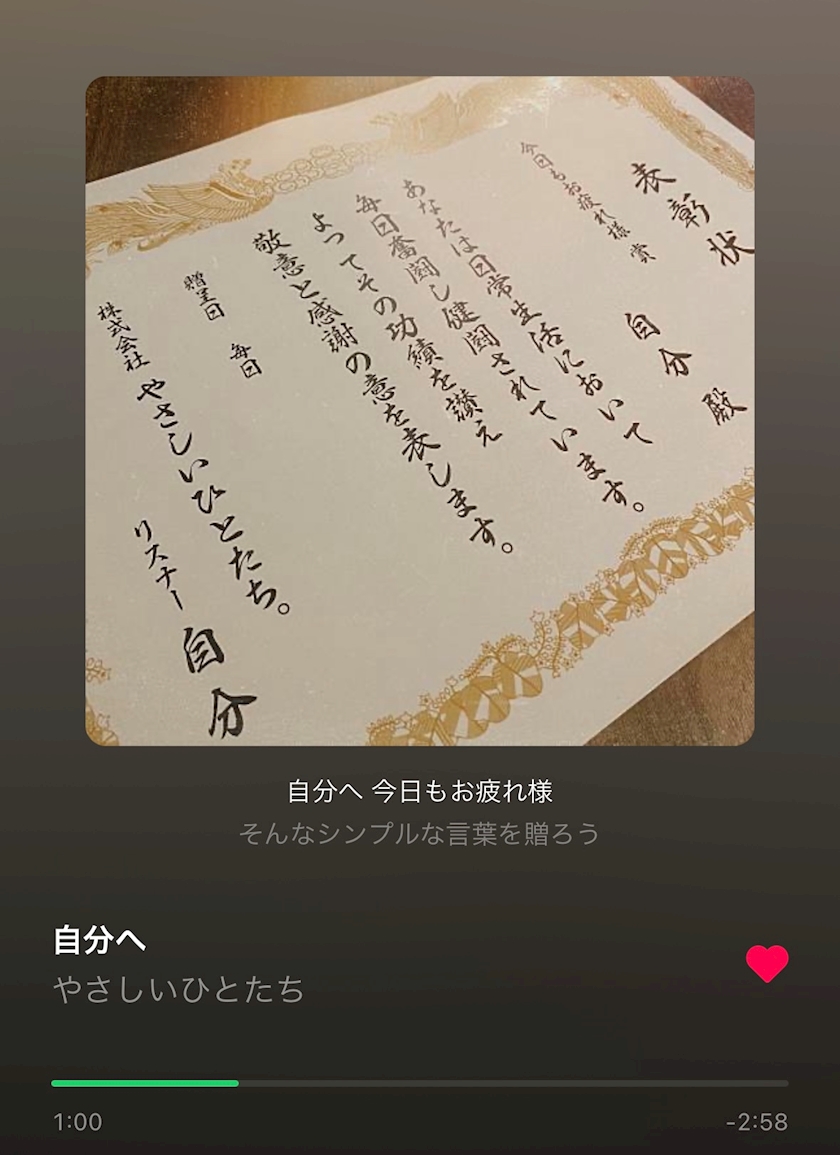 表彰状
自分 殿
今日もお疲れ様 賞
あなたは日常生活において
毎日奮闘し健闘されています。
よってその功績を讃え
敬意と感謝の意を表します。
贈呈日 毎日
株式会社 やさしいひとたち。
リスナー 自分
自分へ 今日もお疲れ様
そんなシンプルな言葉を贈ろう
自分へ
やさしいひとたち
1:00
-2:58